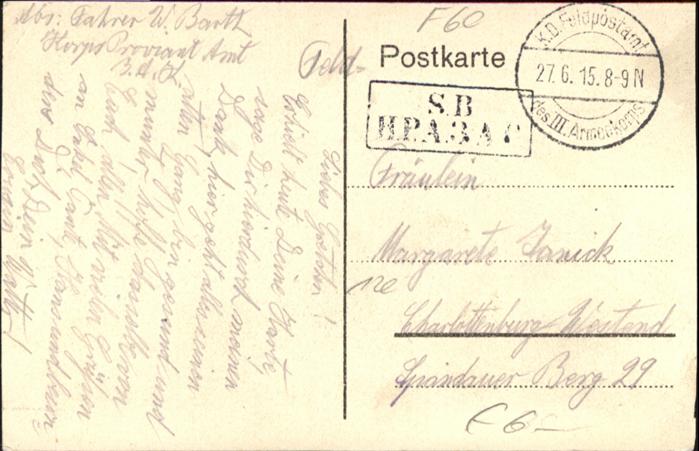 Abs: Fahrer W. Barth
Korps Proviant Amt
3. A. K.
Feld-
Postkarte
F60
K.D. Feldpostamt
27.6.15.8-9N
des III. Armeekorps
S.B
Liebes Gretchen!
Erhielt heute Deine Karte
sage Dir hierdurch meinen
Dank, hier geht alles seinen
alten Gang, bin gesund und
munter, hoffe dasselbe von
Euch allen. Mit vielen Grüßen
an Onkel, Tante, Hans und sein
Dein Vetter
Fräulein
Margarete Janick
Charlottenburg-Westend
Spandauer Berg 29
€6-